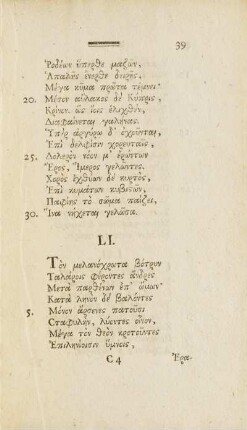 39
Ῥοδέων ὕπερθε μαζῶν,
Ἁπαλῆς ἔνερθε δειρῆς,
Μέγα κῦμα πρῶτα τέμνει·
20. Μέσον αὔλακος δὲ Κύπρις,
Κρίνον ὡς ἴοις ἑλιχθὲν,
Διαφαίνεται γαλήνας.
Ὑπὲρ ἀργύρῳ δ' ὀχοῦνται,
Ἐπὶ δελφῖσιν χορευταῖς,
25. Δολερὸν νόον μ' ἐρώτων
Ἔρος, Ἵμερος γελῶντες.
Χορὸς ἰχθύων δὲ κυρτὸς,
Ἐπὶ κυμάτων κυβιστῶν,
Παφίης τὸ σῶμα παίζει,
30. Ἵνα νήχεται γελῶσα.
LI.
Τὸν μελανόχρωτα βότρυν
Ταλάροις φέροντες ἄνδρες
Μετὰ παρθένων ἐπ' ὤμων·
Κατὰ ληνὸν δὲ βαλόντες
5. Μόνον ἄρσενες πατοῦσι
Σταφυλὴν, λύοντες οἶνον,
Μέγα τὸν θεὸν κροτοῦντες
Ἐπιληνίοισιν ὕμνοις,
C 4 Ἐρα-